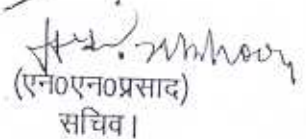 (एन0एन0प्रसाद)
सचिव।